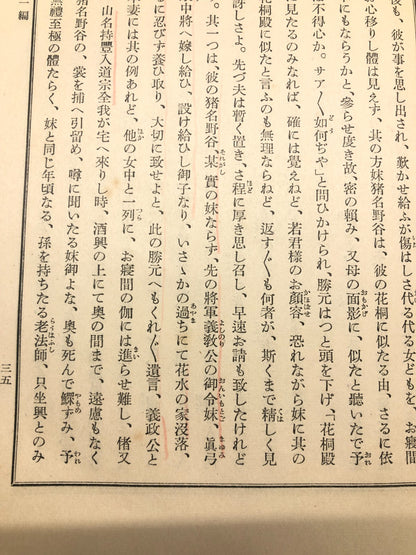 後も、彼が事を思し出され、歎かせ給ふが傷はしさ代る代る女どもを、お寢間
心移りし體は見えず、其の方妹猪名野谷は、彼の花桐に似たる由、さるに依
にもならうかと、參らせ度き故、密の賴み、又母の面影に、似たと聽いたで予
は不得心か。サア〳〵如何ぢや」と問ひかけられ、勝元はつと頭を下げ、「花桐殿
見たるのみなれば、確には覺えねど、若君樣のお顏容、恐れながら妹に其の
花桐殿に似たと言ふのも無理ならねど、返す〳〵も何者が、斯くまで精しく見
訝しさよ。先づ夫は暫く置き、さ程に厚き思し召し、早速お請も致したけれど
。其一つは、彼の猪名野谷、某が實の妹ならず、先の將軍義敎公の御令妹、眞弓
中將へ嫁し給ひ、設け給ひし御子なり、いさゝかの過ちにて花水の家沒落、
に忍びず養ひ取り、大切に致せよと、此の勝元へもくれ〴〵遺言、義政公と
妻には其の例あれど、他の女中と一列に、お寢間の伽には進らせ難し、偖又
山名持豐入道宗全我が宅へ來りし時、酒興の上にて奧の間まで、遠慮もなく
猪名野谷の、裳を捕へ引留め、噂に聞いたる妹御よな、奧も死んで鰥すみ、予
無禮至極の體たらく、妹と同じ年頃なる、孫を持ちたる老法師、只坐興とのみ
二編
三五